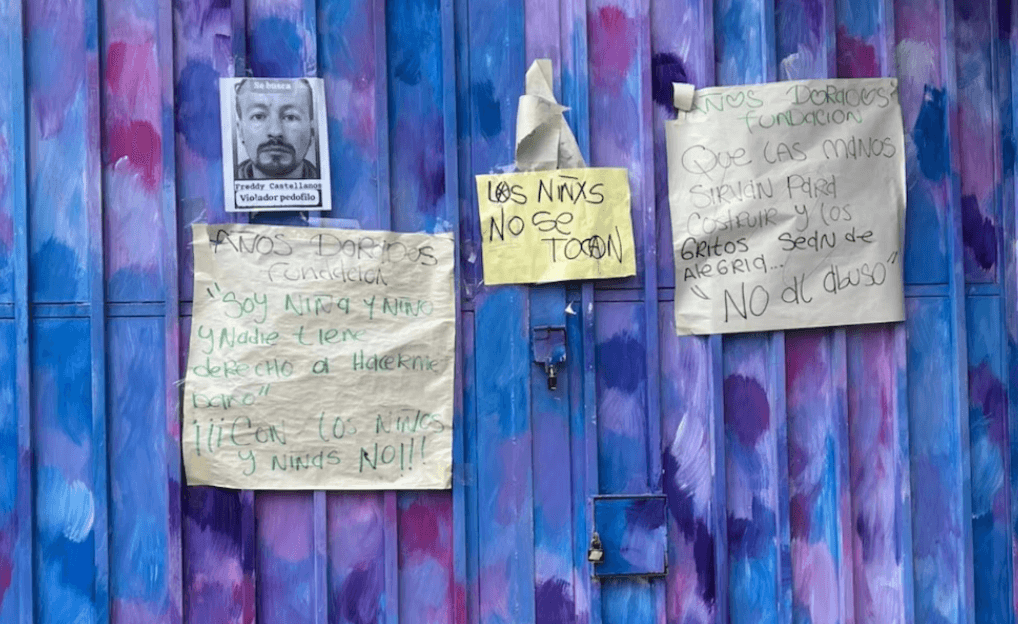 Se busca
Freddy Castellanos
Violador pedofilo
AÑOS DORADOS
FUNDACION
"SOY NIÑA Y NIÑO
y Nadie tiene
derecho a HACERME
DAÑO"
¡¡¡CON LOS NIÑOS
Y NIÑAS NO!!!
LOS NIÑXS
NO Se
TOCAN
AÑOS DORADOS
FUNDACION
QUE LAS MANOS
SIRVAN PARA
COSTRUIR Y LOS
GRITOS SEAN de
ALEGRIA...
"NO al abuso"